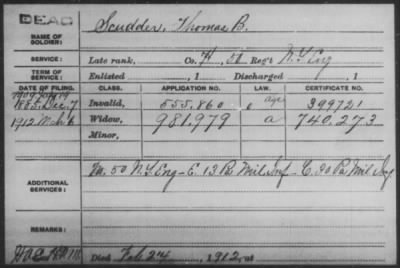 DEAD
NAME OF SOLDIER: Scudder, Thomas B.
SERVICE: Late rank, Co. H, 50 Reg't N.Y. Eng
TERM OF SERVICE: Enlisted , 1 Discharged , 1
DATE OF FILING. CLASS. APPLICATION NO. LAW. CERTIFICATE NO.
1885 Dec. 7 Invalid, 555.860 age 399721
1912 Mch 6 Widow, 981.979 a 740.273
Minor,
ADDITIONAL SERVICES: M. 50 N.Y. Eng - E. 13 Pa Mil Inf - C. 30 Pa Mil Inf
REMARKS:
Died Feb 24, 1912, at